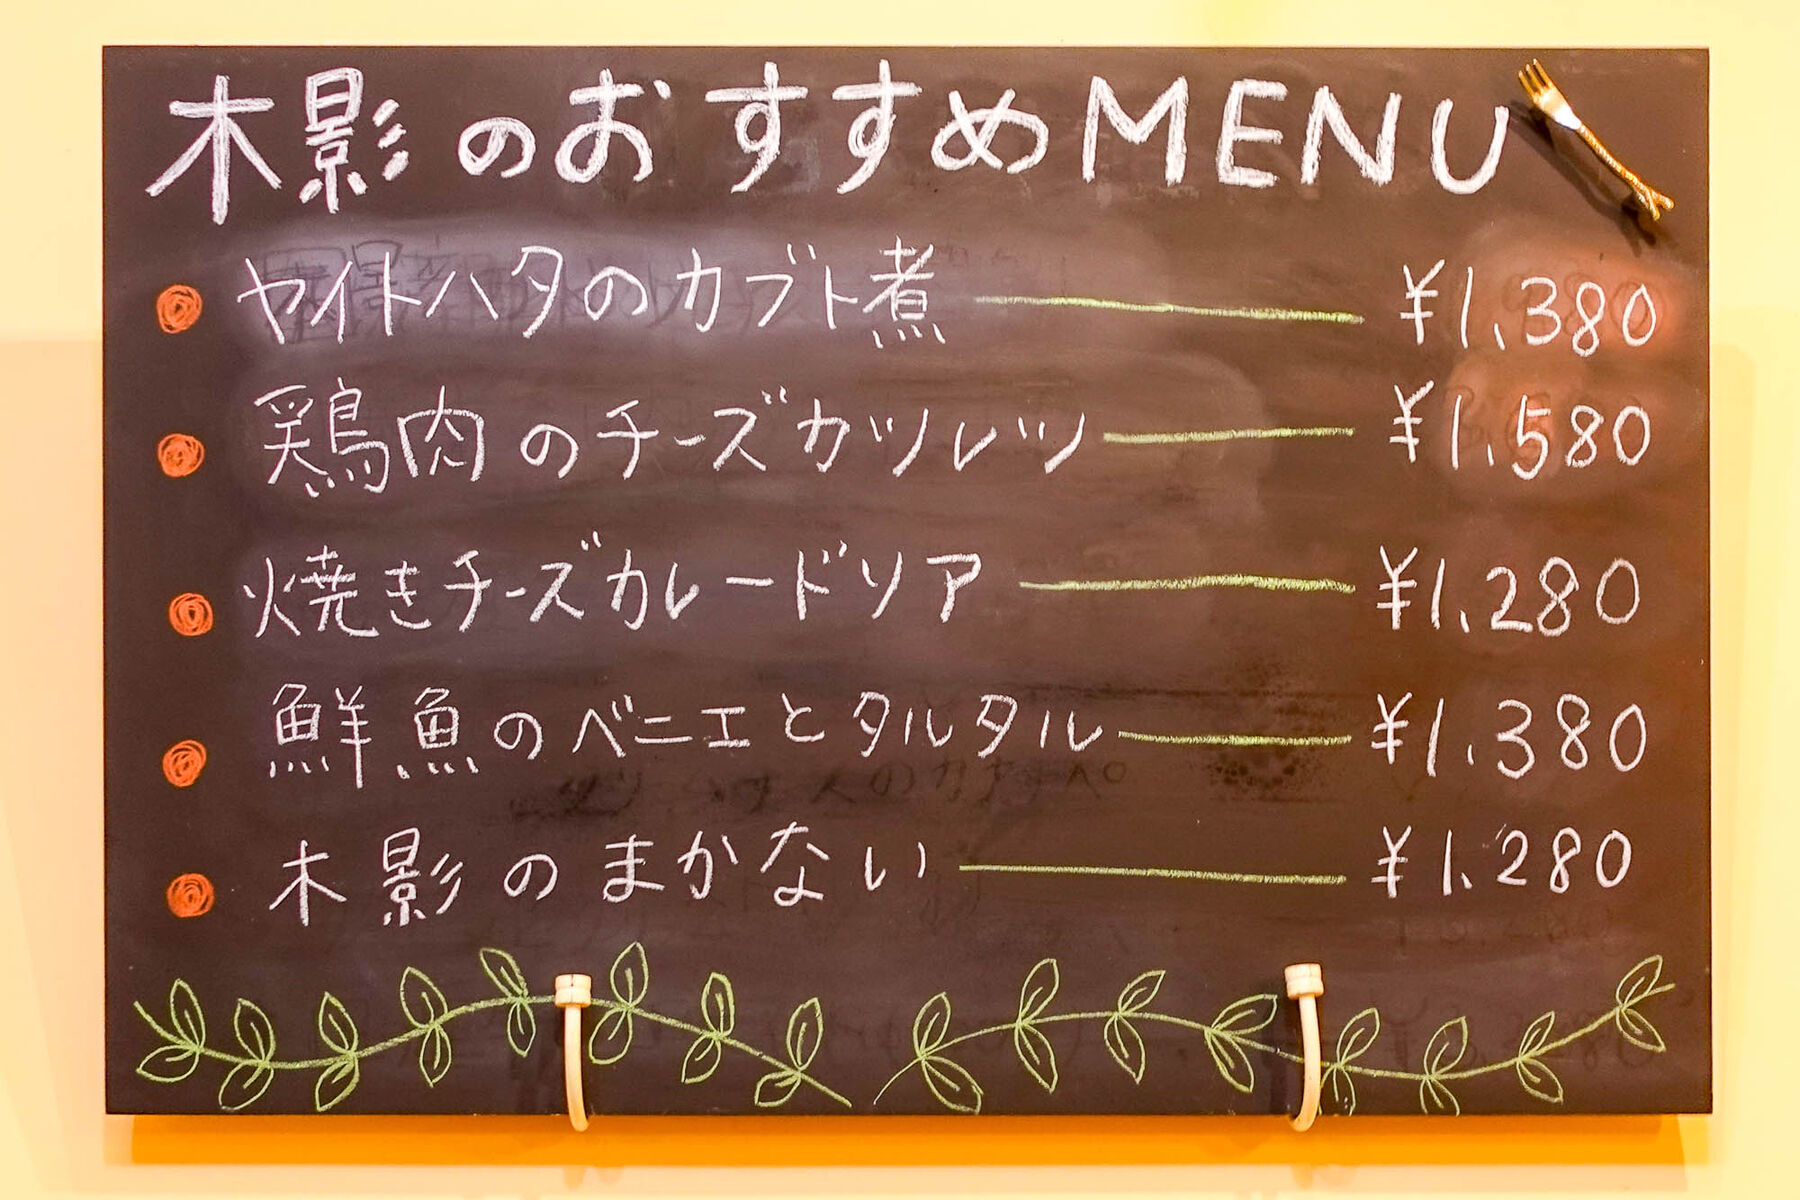 木影のおすすめMENU
ヤイトハタのカブト煮 ¥1,380
鶏肉のチーズカツレツ ¥1,580
焼きチーズカレードリア ¥1,280
鮮魚のベニエとタルタル ¥1,380
木影のまかない ¥1,280